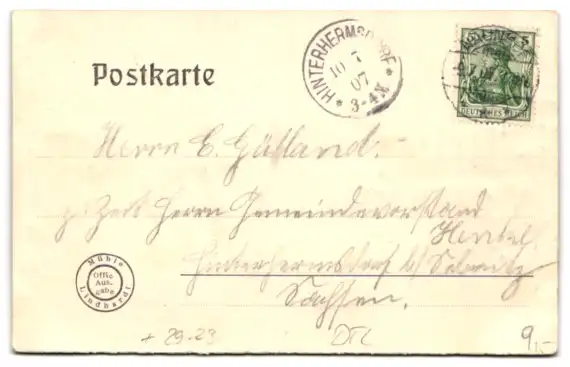 Postkarte
HINTERHERMSDORF
10 7
07
* 3-4N *
5
DEUTSCHES REICH
Herrn E. Gülland.
z. Zeit Herrn Gemeindevorstand
Hentzel
Hinterhermsdorf b/ Sebnitz
Sachsen.
Mühle
Offic
Aus-
gabe
Lindhardt
+ 29.23
9,-